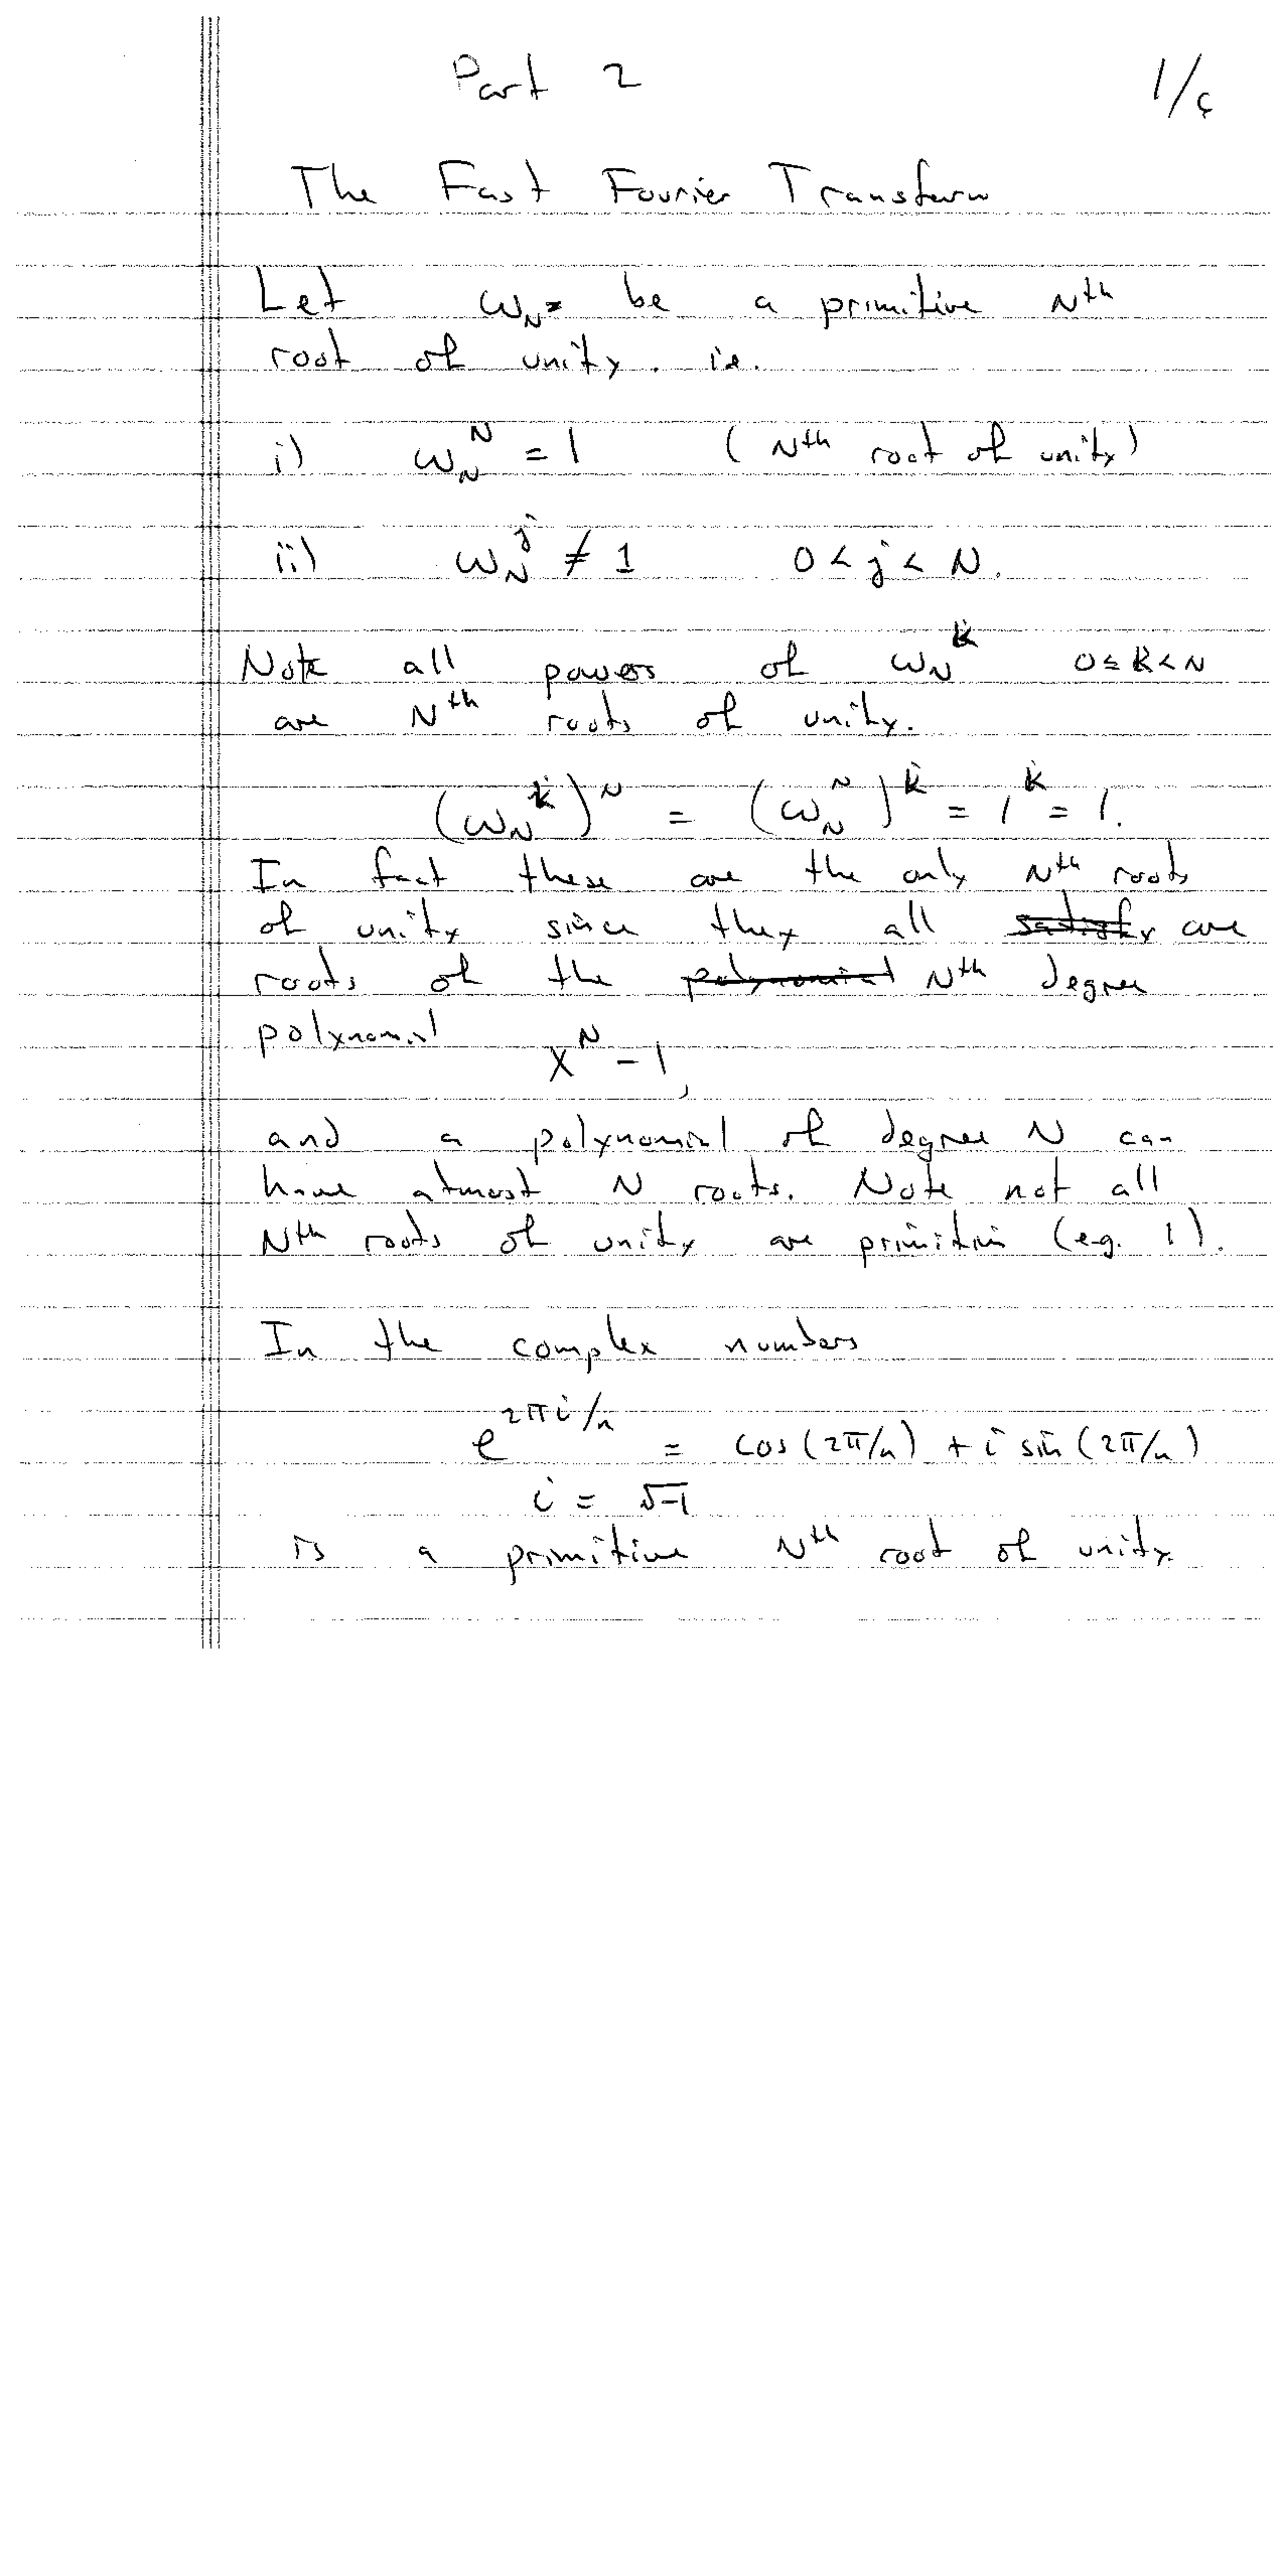 Part 2 1/
The Fast Fourier Transform
Let ω_N be a primitive Nth
root of unity. i.e.
i) ω_N^N = 1 ( Nth root of unity)
ii) ω_N^j ≠ 1 0 < j < N.
Note all powers of ω_N^k 0 ≤ k < N
are Nth roots of unity.
(ω_N^k)^N = (ω_N^N)^k = 1^k = 1.
In fact these are the only Nth roots
of unity since they all satisfy are
roots of the polynomial Nth degree
polynomial
X^N - 1,
and a polynomial of degree N can
have atmost N roots. Note not all
Nth roots of unity are primitive (e.g. 1).
In the complex numbers
e^{2πi/n} = cos(2π/n) + i sin(2π/n)
i = √-1
is a primitive Nth root of unity.